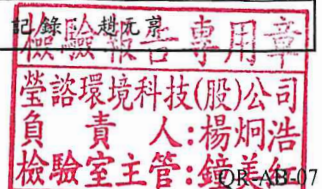 記錄：趙元
檢驗報告專用章
瑩諮環境科技(股)公司
負責人:楊炯浩
檢驗室主管:鐘美紅
QR-AB-07